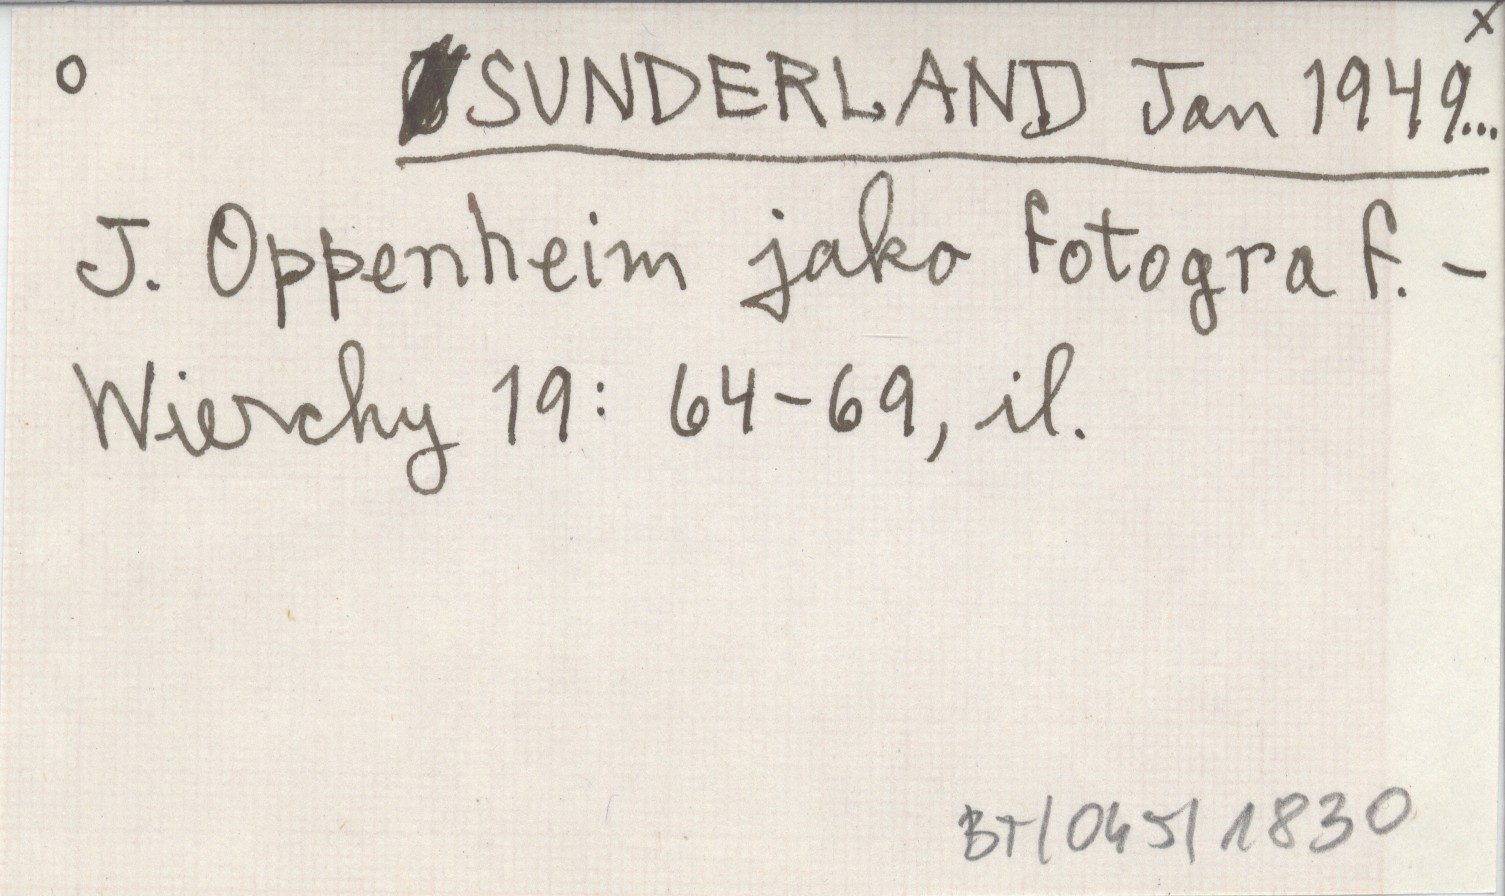 x
o SUNDERLAND Jan 1949...
J. Oppenheim jako fotograf. -
Wierchy 19: 64-69, il.
BT/045/1830